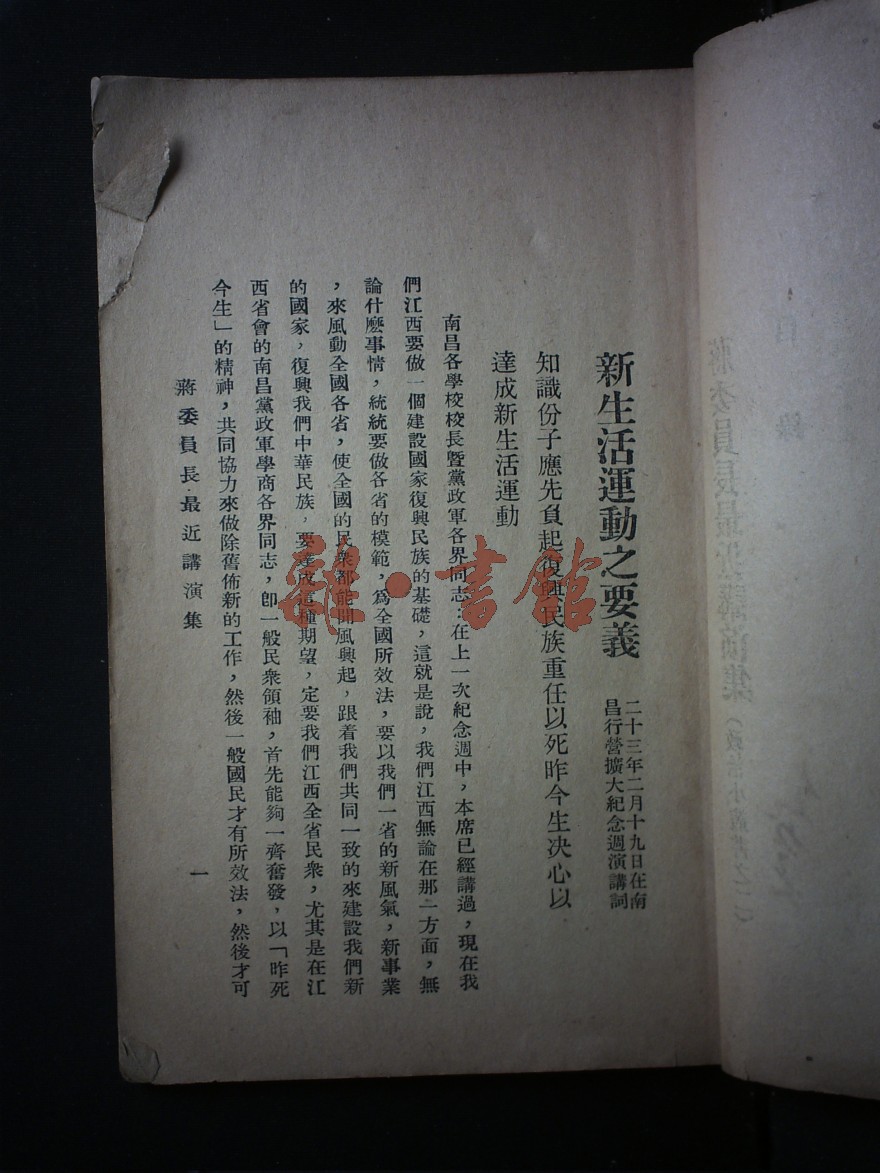 新生活運動之要義
二十三年二月十九日在南
昌行營擴大紀念週演講詞
知識份子應先負起復興民族重任以死昨今生決心以
達成新生活運動
南昌各學校校長暨黨政軍各界同志:在上一次紀念週中,本席已經講過,現在我
們江西要做一個建設國家復興民族的基礎,這就是說,我們江西無論在那一方面,無
論什麼事情,統統要做各省的模範,爲全國所效法,要以我們一省的新風氣,新事業
,來風動全國各省,使全國的民衆都能聞風興起,跟着我們共同一致的來建設我們新
的國家,復興我們中華民族,要達成這種期望,定要我們江西全省民衆,尤其是在江
西省會的南昌黨政軍學商各界同志,卽一般民衆領袖,首先能夠一齊奮發,以「昨死
今生」的精神,共同協力來做除舊佈新的工作,然後一般國民才有所效法,然後才可
蔣委員長最近講演集
一
雜·書館
目錄
蔣委員長最近講演集